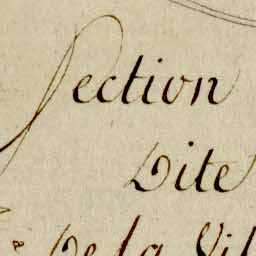 Section
Dite
De la Vil